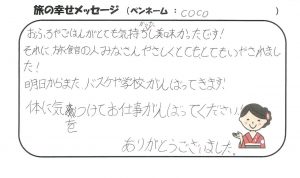 旅の幸せメッセージ (ペンネーム: COCO )
おふろやごはんがとても気持ちよく美味かったです!
それに旅館の人みなさんやさしくとてもとてもいやされまし
た!
明日からまた、バスケや学校がんばってきます!
体に気をつけてお仕事がんばってください
ありがとうございました。